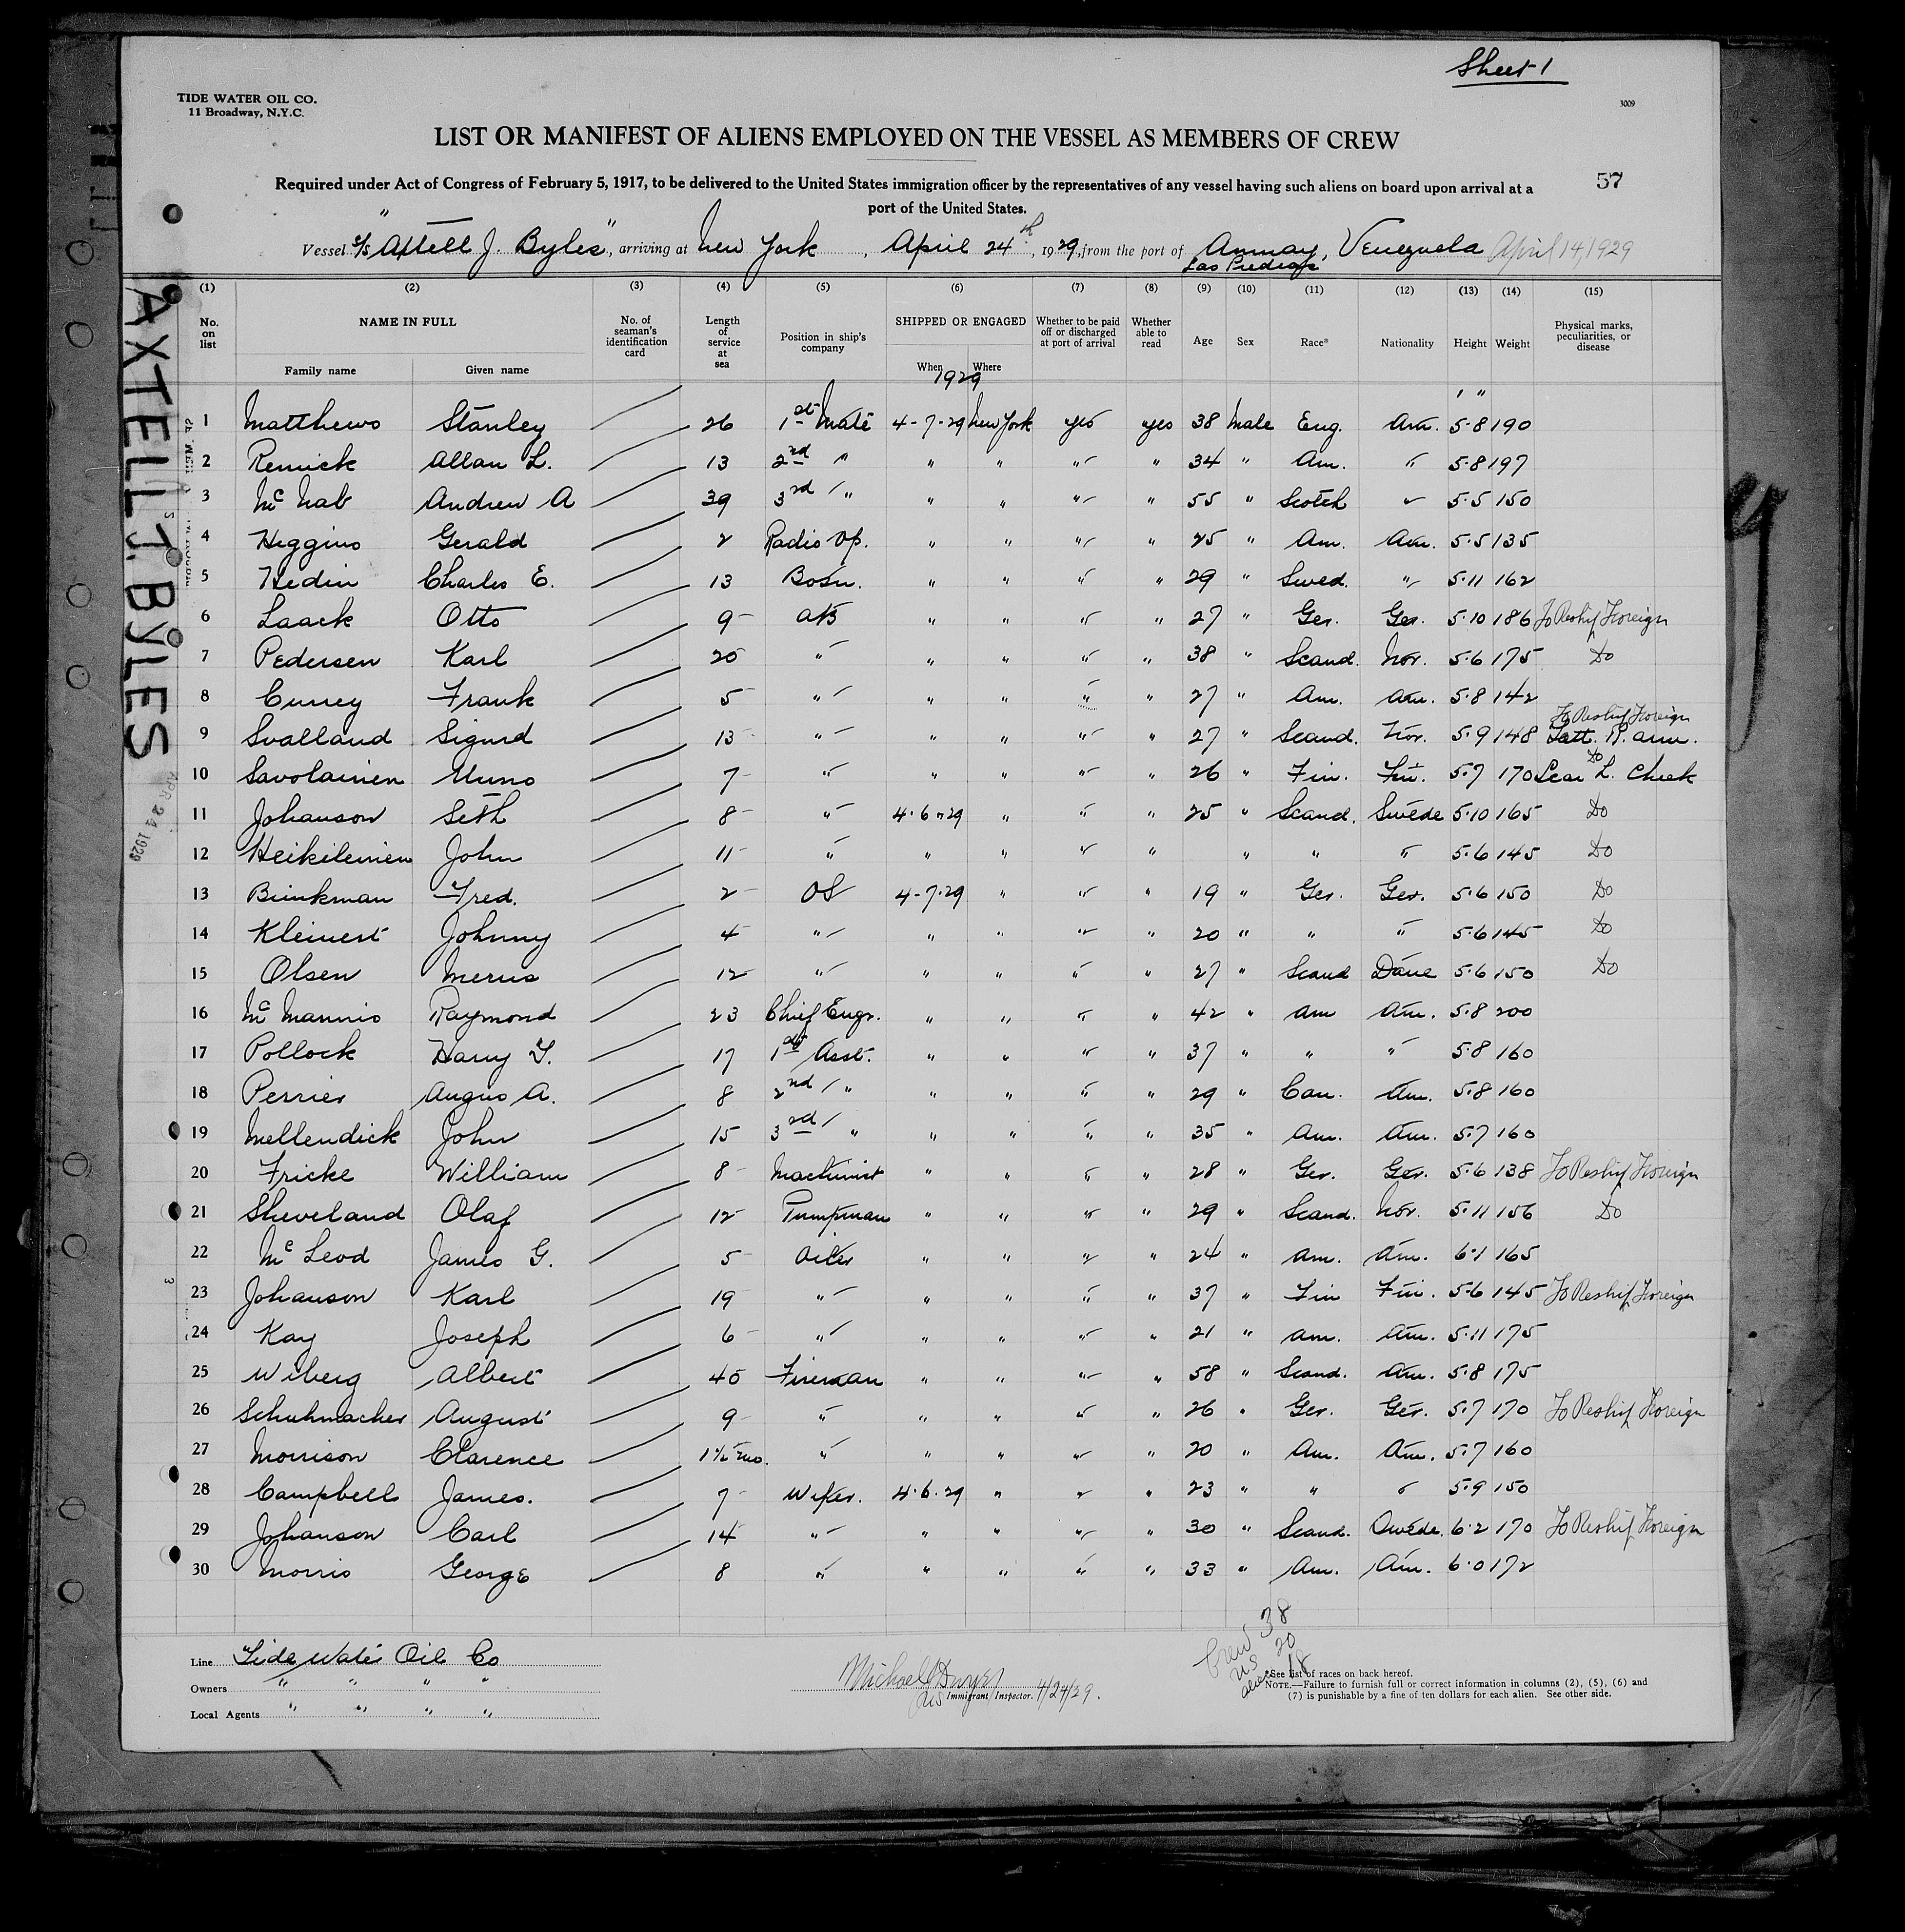 Sheet 1
TIDE WATER OIL CO.
11 Broadway, N.Y.C.
3009
LIST OR MANIFEST OF ALIENS EMPLOYED ON THE VESSEL AS MEMBERS OF CREW
Required under Act of Congress of February 5, 1917, to be delivered to the United States immigration officer by the representatives of any vessel having such aliens on board upon arrival at a
57
port of the United States.
Vessel S/S "Axtell J. Byles", arriving at New York, April 24th, 1929, from the port of Amuay, Venezuela April 14, 1929
Las Piedras
(1) (2) (3) (4) (5) (6) (7) (8) (9) (10) (11) (12) (13) (14) (15)
No. on list NAME IN FULL No. of seaman's identification card Length of service at sea Position in ship's company SHIPPED OR ENGAGED Whether to be paid off or discharged at port of arrival Whether able to read Age Sex Race* Nationality Height Weight Physical marks, peculiarities, or disease
Family name Given name When Where
1929
' "
1 Matthews Stanley 26 1st Mate 4-7-29 New York yes yes 38 Male Eng. Am. 5-8 190
2 Remick Allan L. 13 2nd " " " " " 34 " Am. " 5-8 197
3 McNab Andrew A 39 3rd " " " " " 55 " Scotch " 5-5 150
4 Higgins Gerald 2 Radio Op. " " " " 25 " Am. Am. 5-5 135
5 Hedin Charles E. 13 Bosn. " " " " 29 " Swed. " 5-11 162
6 Laack Otto 9 AB " " " " 27 " Ger. Ger. 5-10 186 To Reship Foreign
7 Pedersen Karl 20 " " " " " 38 " Scand. Nor. 5-6 175 Do
8 Curney Frank 5 " " " " " 27 " Am. Am. 5-8 142
To Reship Foreign
9 Svalland Sigurd 13 " " " " " 27 " Scand. Nor. 5-9 148 Tatt. R. arm.
Do
10 Savolainen Uuno 7 " " " " " 26 " Fin. Fin. 5-7 170 Scar L. Cheek
11 Johanson Seth 8 " 4-6-29 " " " 25 " Scand. Swede 5-10 165 Do
12 Heikileinien John 11 " " " " " " " " 5-6 145 Do
13 Brinkman Fred. 2 OS 4-7-29 " " " 19 " Ger. Ger. 5-6 150 Do
14 Kleinert Johnny 4 " " " " " 20 " " " 5-6 145 Do
15 Olsen Merius 12 " " " " " 27 " Scand Dane 5-6 150 Do
16 McMannis Raymond 23 Chief Engr. " " " " 42 " Am Am. 5-8 200
17 Pollock Harry Y. 17 1st Asst. " " " " 37 " " " 5-8 160
18 Perrier Angus A. 8 2nd " " " " " 29 " Can. Am. 5-8 160
19 Mellendick John 15 3rd " " " " " 35 " Am. Am. 5-7 160
20 Fricke William 8 Machinist " " " " 28 " Ger. Ger. 5-6 138 To Reship Foreign
21 Sheveland Olaf 12 Pumpman " " " " 29 " Scand. Nor. 5-11 156 Do
22 McLeod James G. 5 Oiler " " " " 24 " Am. Am. 6-1 165
23 Johanson Karl 19 " " " " " 37 " Fin Fin. 5-6 145 To Reship Foreign
24 Kay Joseph 6 " " " " " 21 " Am. Am. 5-11 175
25 Wiberg Albert 40 Fireman " " " " 58 " Scand. Am. 5-8 175
26 Schuhmacher August 9 " " " " " 26 " Ger. Ger. 5-7 170 To Reship Foreign
27 Morrison Clarence 1 1/2 mo. " " " " " 20 " Am. Am. 5-7 160
28 Campbell James. 7 Wiper. 4-6-29 " " " 23 " " " 5-9 150
29 Johanson Carl 14 " " " " " 30 " Scand. Swede. 6-2 170 To Reship Foreign
30 Morris George 8 " " " " " 33 " Am. Am. 6-0 172
Crew 38
US 20
alien 18
Line Tide Water Oil Co
Owners " " " "
Local Agents " " " "
Michael Dwyer
Immigrant Inspector. 4/24/29.
*See list of races on back hereof.
NOTE.—Failure to furnish full or correct information in columns (2), (5), (6) and
(7) is punishable by a fine of ten dollars for each alien. See other side.
AXTELL J. BYLES
APR 24 1929